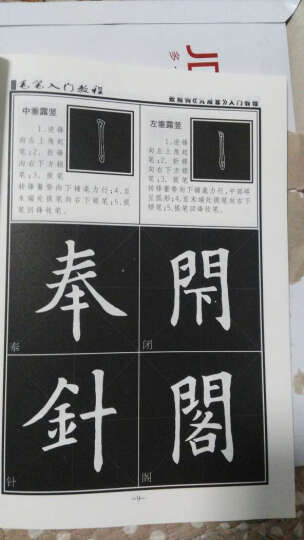 毛笔入门教程
入门教程
中垂露竖
1、逆锋
向左上角起
笔；2、折锋
向右下方顿
笔；3、提笔
转锋蓄势向下铺毫力行；4、至
末端处提笔向右下顿笔；5、提
笔回锋收笔。
左垂露竖
1、逆锋
向左上角起
笔；2、折锋
向右下方顿
笔；3、提笔
转锋蓄势向下铺毫力行，中部略
呈弧形；4、至末端处提笔向右下
顿笔；5、提笔回锋收笔。
奉
奉
閇
闭
針
针
閣
阁
-9-